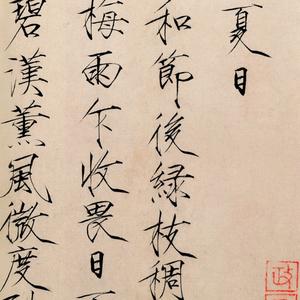 夏日
和節後緑枝稠
梅雨乍收畏日
碧漢薰風微度
政